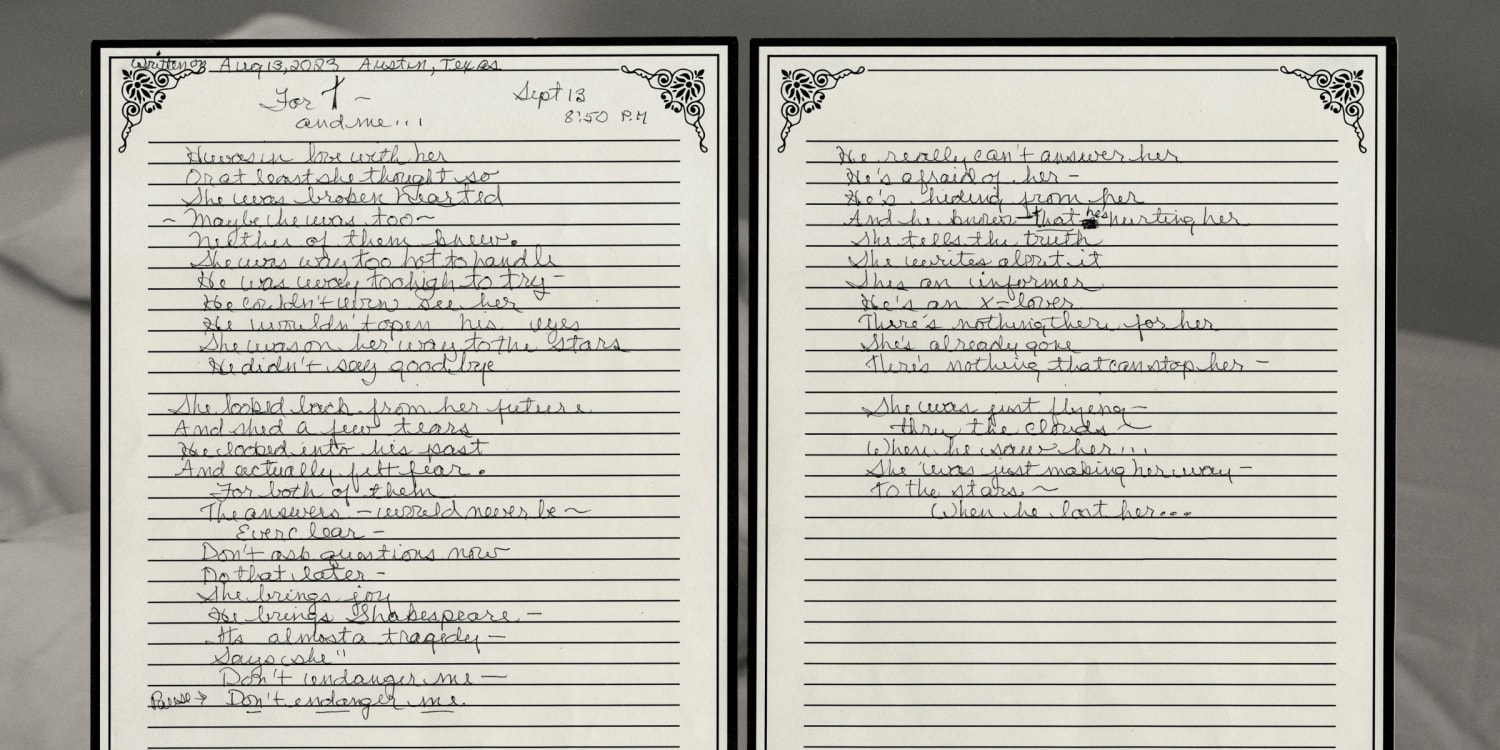 Written on Aug 13, 2023 Austin, Texas
For T ~
and me...
Sept 13
8:50 P.M
He was in love with her
Or at least she thought so
She was broken hearted
~ Maybe he was too ~
Neither of them knew.
She was way too hot to handle
He was way too high to try -
He couldn't even see her
He wouldn't open his eyes
She was on her way to the stars
He didn't say goodbye
She looked back from her future
And shed a few tears
He looked into his past
And actually felt fear.
For both of them
The answers - would never be ~
Ever clear -
Don't ask questions now
Do that later -
She brings joy
He brings Shakespeare -
Its almost a tragedy -
Says she"
Don't endanger me -
Pause → Don't endanger me.
He really can't answer her
He's afraid of her -
He's hiding from her
And he knows that he's hurting her
She tells the truth
She writes about it
She's an informer
He's an x-lover
There's nothing there for her
She's already gone
There's nothing that can stop her -
She was just flying -
thru the clouds ~
When he saw her...
She was just making her way -
To the stars ~
When he lost her...